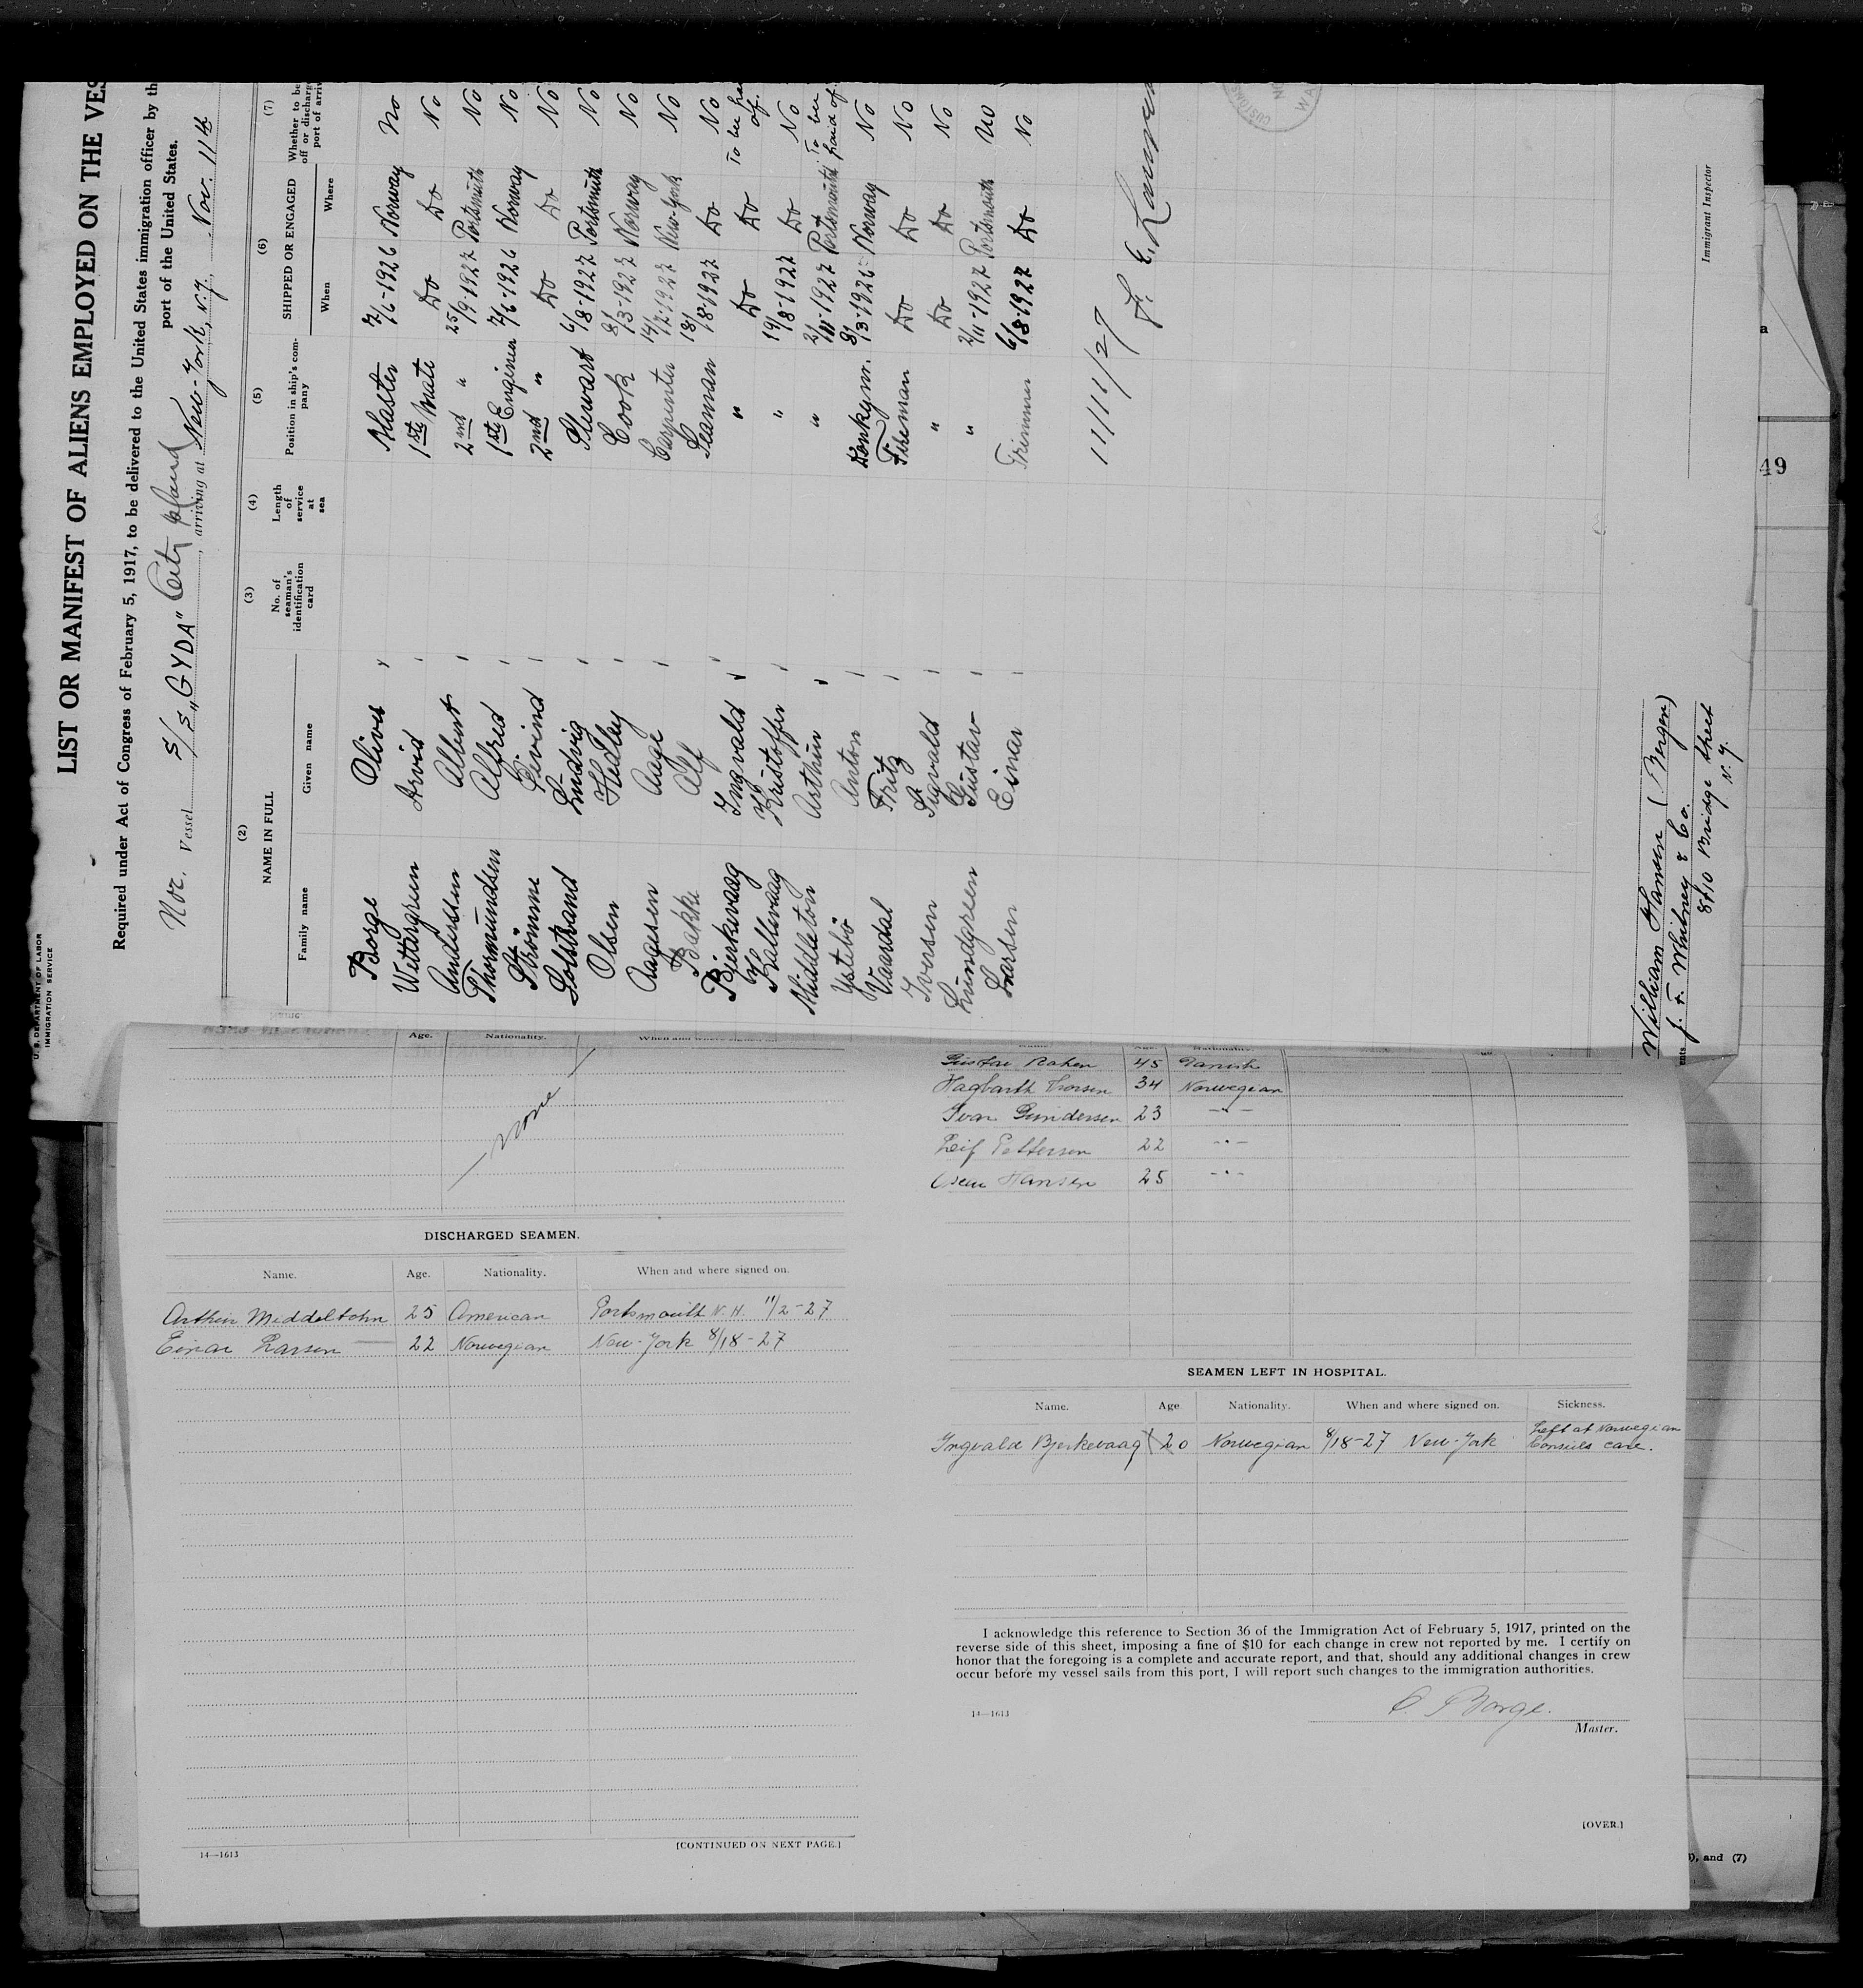 U. S. DEPARTMENT OF LABOR
IMMIGRATION SERVICE
LIST OR MANIFEST OF ALIENS EMPLOYED ON THE VES
Required under Act of Congress of February 5, 1917, to be delivered to the United States immigration officer by th
port of the United States.
Nor. Vessel S/S "GYDA" , arriving at New-York, N.Y., Nov. 11th
(2) (3) (4) (5) (6) (7)
NAME IN FULL
Family name Given name
No. of seaman's identification card
Length of service at sea
Position in ship's company
SHIPPED OR ENGAGED
When Where
Whether to be
off or discharg
port of arriv
Borge Oliver Master 7/6-1926 Norway No
Wettergreen Arvid 1st Mate Do Do No
Anderssen Albert 2nd " 25/9-1927 Portsmouth No
Thormundsen Alfred 1st Engineer 7/6-1926 Norway No
Strömme Eivind 2nd " Do Do No
Solstrand Ludvig Stewart 6/8-1927 Portsmouth No
Olsen Hedley Cook 8/3-1927 Norway No
Aagesen Aage Carpenter 14/7-1927 New-York No
Bakke Alf Seaman 18/8-1927 Do No
Bjerkevaag Ingvald " Do Do To be
of.
Kallevaag Kristoffer " 19/8-1927 Do No
Middleton Arthur " 2/11-1927 Portsmouth To be
paid of
Ystebö Anton Donkeymn. 8/3-1926 Norway No
Vaardal Fritz Fireman Do Do No
Iversen Sigvald " Do Do No
Lundgreen Gustav " 2/11-1927 Portsmouth No
Larsen Einar Trimmer 6/8-1927 Do No
11/11/27
Immigrant Inspector
William Hansen (Bergen)
ents J. F. Whitney & Co.
8/10 Bridge street
N.Y.
49
Age. Nationality. When and where signed on.
none
DISCHARGED SEAMEN.
Name. Age. Nationality. When and where signed on.
Arthur Middeltohn 25 American Portsmouth N.H. 11/2-27
Einar Larsen 22 Norwegian New-York 8/18-27
14—1613
[CONTINUED ON NEXT PAGE.]
Gustav Raken 45 Danish
Hagbarth Thorsen 34 Norwegian
Ivar Gundersen 23 -"-
Leif Pettersen 22 -"-
Hansen 25 -"-
SEAMEN LEFT IN HOSPITAL.
Name. Age Nationality. When and where signed on. Sickness.
Ingvald Bjerkevaag 20 Norwegian 8/18-27 New-York Left at Norwegian
Consuls care.
I acknowledge this reference to Section 36 of the Immigration Act of February 5, 1917, printed on the
reverse side of this sheet, imposing a fine of $10 for each change in crew not reported by me. I certify on
honor that the foregoing is a complete and accurate report, and that, should any additional changes in crew
occur before my vessel sails from this port, I will report such changes to the immigration authorities.
14—1613
O. Borge.
Master.
[OVER.]
), and (7)